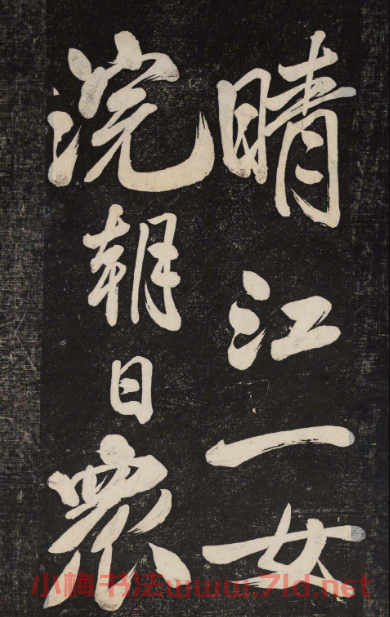 晴江一女
浣朝日眾
小梅书法www.7ld.net